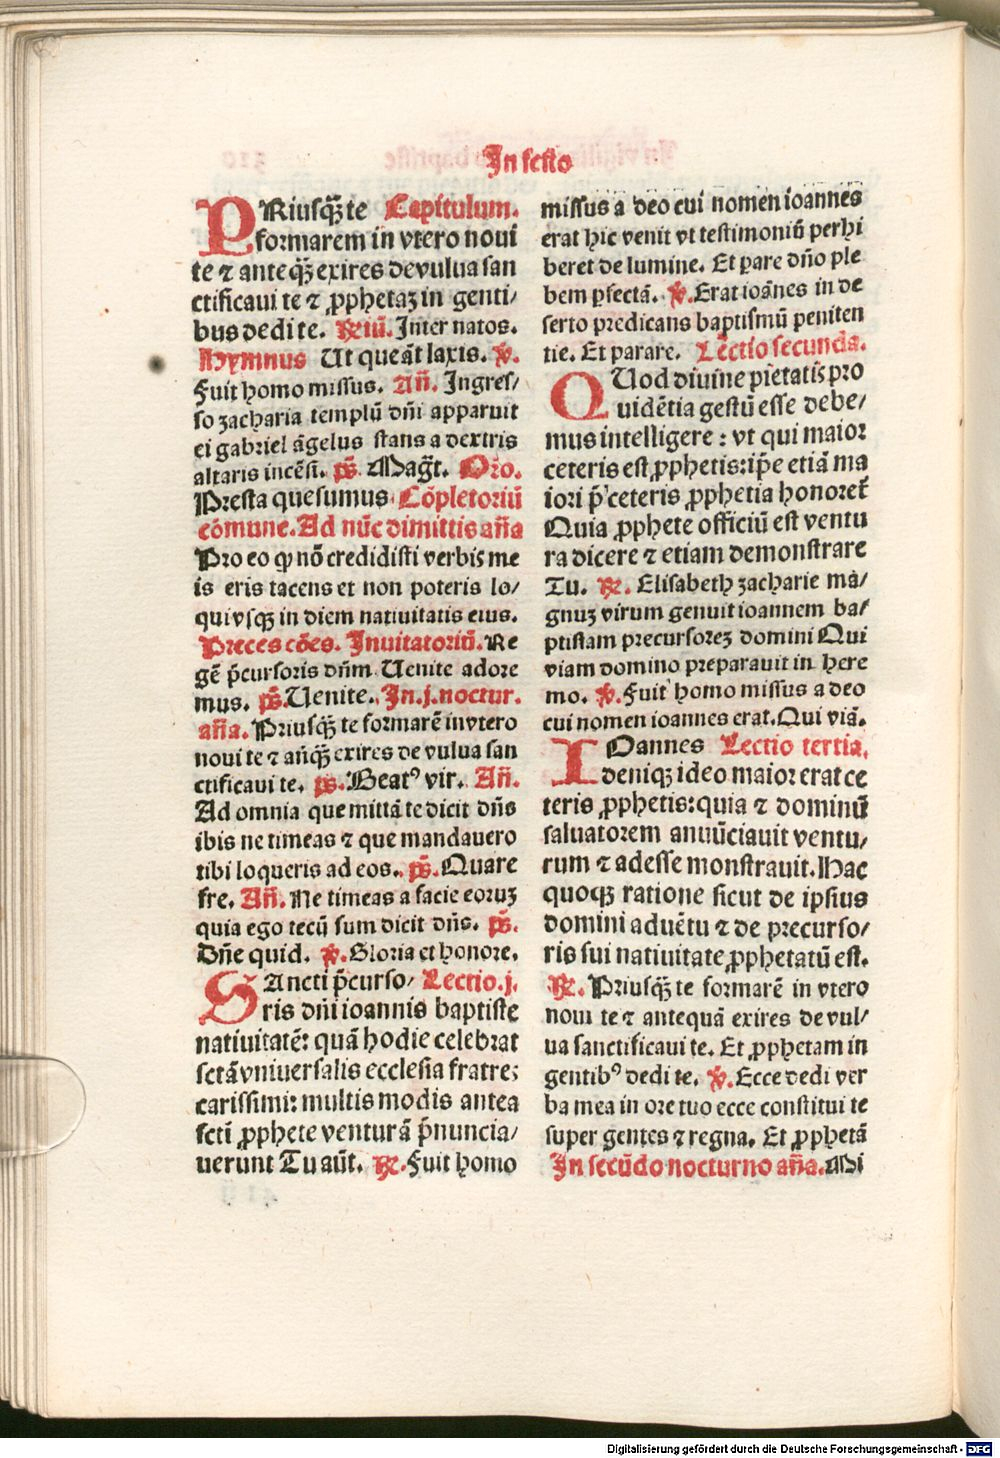 In festo
PRiusq̄ꝫ te Capitulum.
formarem in vtero noui
te ⁊ ante q̄ꝫ exires de vulua san
ctificaui te ⁊ ꝓphetaꝫ in genti/
bus dedi te. ℟iū. Inter natos.
Hymnus Ut queāt laxis. ℣.
Fuit homo missus. Añ. Ingres/
so zacharia templū dñi apparuit
ei gabriel āgelus stans a dextris
altaris incēsi. p̄s. Magt̄. Or̄o.
Presta quesumus. Cōpletoriū
cōmune. Ad nūc dimittis aña
Pro eo ꝙ nō credidisti verbis me
is eris tacens et non poteris lo/
qui vsqꝫ in diem natiuitatis eius.
Preces cōes. Inuitatoriū. Re
gē p̄cursoris dñm Uenite adore
mus. p̄s. Uenite. In .j. noctur.
aña. Priusq̄ꝫ te formarē in vtero
noui te ⁊ añq̄ꝫ exires de vulua san
ctificaui te. p̄s. Beatꝰ vir. Añ.
Ad omnia que mittā te dicit dñs
ibis ne timeas ⁊ que mandauero
tibi loqueris ad eos. p̄s. Quare
fre. Añ. Ne timeas a facie eoruꝫ
quia ego tecū sum dicit dñs. p̄s.
Dñe quid. ℣. Gloria et honore.
SAncti p̄curso/ Lectio .j.
ris dñi ioannis baptiste
natiuitatē: quā hodie celebrat
sctā vniuersalis ecclesia fratres
carissimi: multis modis antea
scti ꝓphete venturā p̄nuncia/
uerunt Tu aūt. ℟. Fuit homo
missus a deo cui nomen ioannes
erat hic venit vt testimoniū perhi
beret de lumine. Et pare dño ple
bem ꝑfectā. ℣. Erat ioānes in de
serto predicans baptismū peniten
tie. Et parare. Lectio secunda.
QUod diuine pietatis pro
uidētia gestū esse debe/
mus intelligere: vt qui maior
ceteris est ꝓphetis: ip̄e etiā ma
iori p̄ ceteris ꝓphetia honoret̄
Quia ꝓphete officiū est ventu
ra dicere ⁊ etiam demonstrare
Tu. ℟. Elisabeth zacharie ma/
gnuꝫ virum genuit ioannem ba/
ptistam precursoreꝫ domini Qui
viam domino preparauit in here
mo. ℣. Fuit homo missus a deo
cui nomen ioannes erat. Qui viā.
IOannes Lectio tertia.
deniqꝫ ideo maior erat ce
teris ꝓphetis: quia ⁊ dominū
saluatorem annūciauit ventu/
rum ⁊ adesse monstrauit. Hac
quoqꝫ ratione sicut de ipsius
domini aduētu ⁊ de precurso/
ris sui natiuitate ꝓphetatū est.
℟. Priusq̄ꝫ te formarē in vtero
noui te ⁊ antequā exires de vul/
ua sanctificaui te. Et ꝓphetam in
gentibꝰ dedi te. ℣. Ecce dedi ver
ba mea in ore tuo ecce constitui te
super gentes ⁊ regna. Et ꝓphetā
In secūdo nocturno aña. Mi
Digitalisierung gefördert durch die Deutsche Forschungsgemeinschaft - DFG